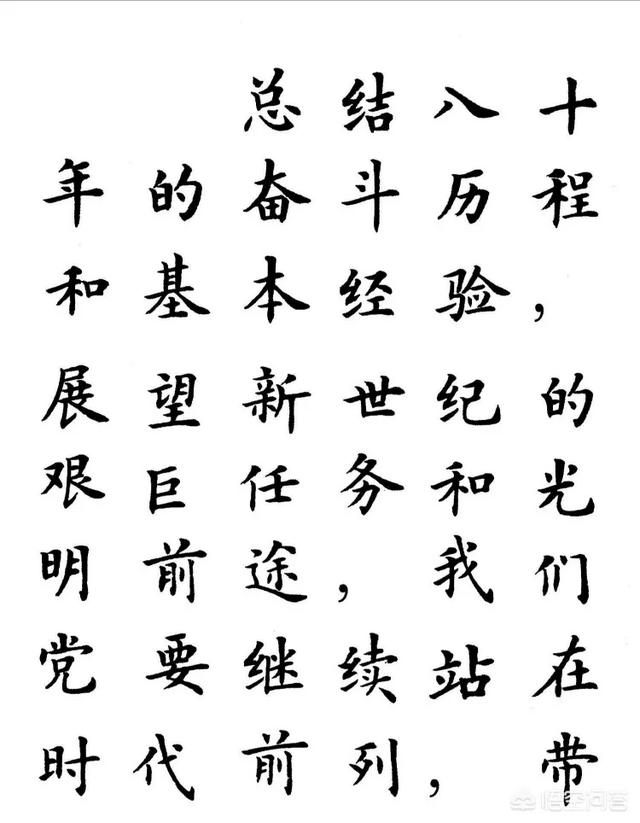 总结八十
年的奋斗历程
和基本经验，
展望新世纪的
艰巨任务和光
明前途，我们
党要继续站在
时代前列，带
悟空问答